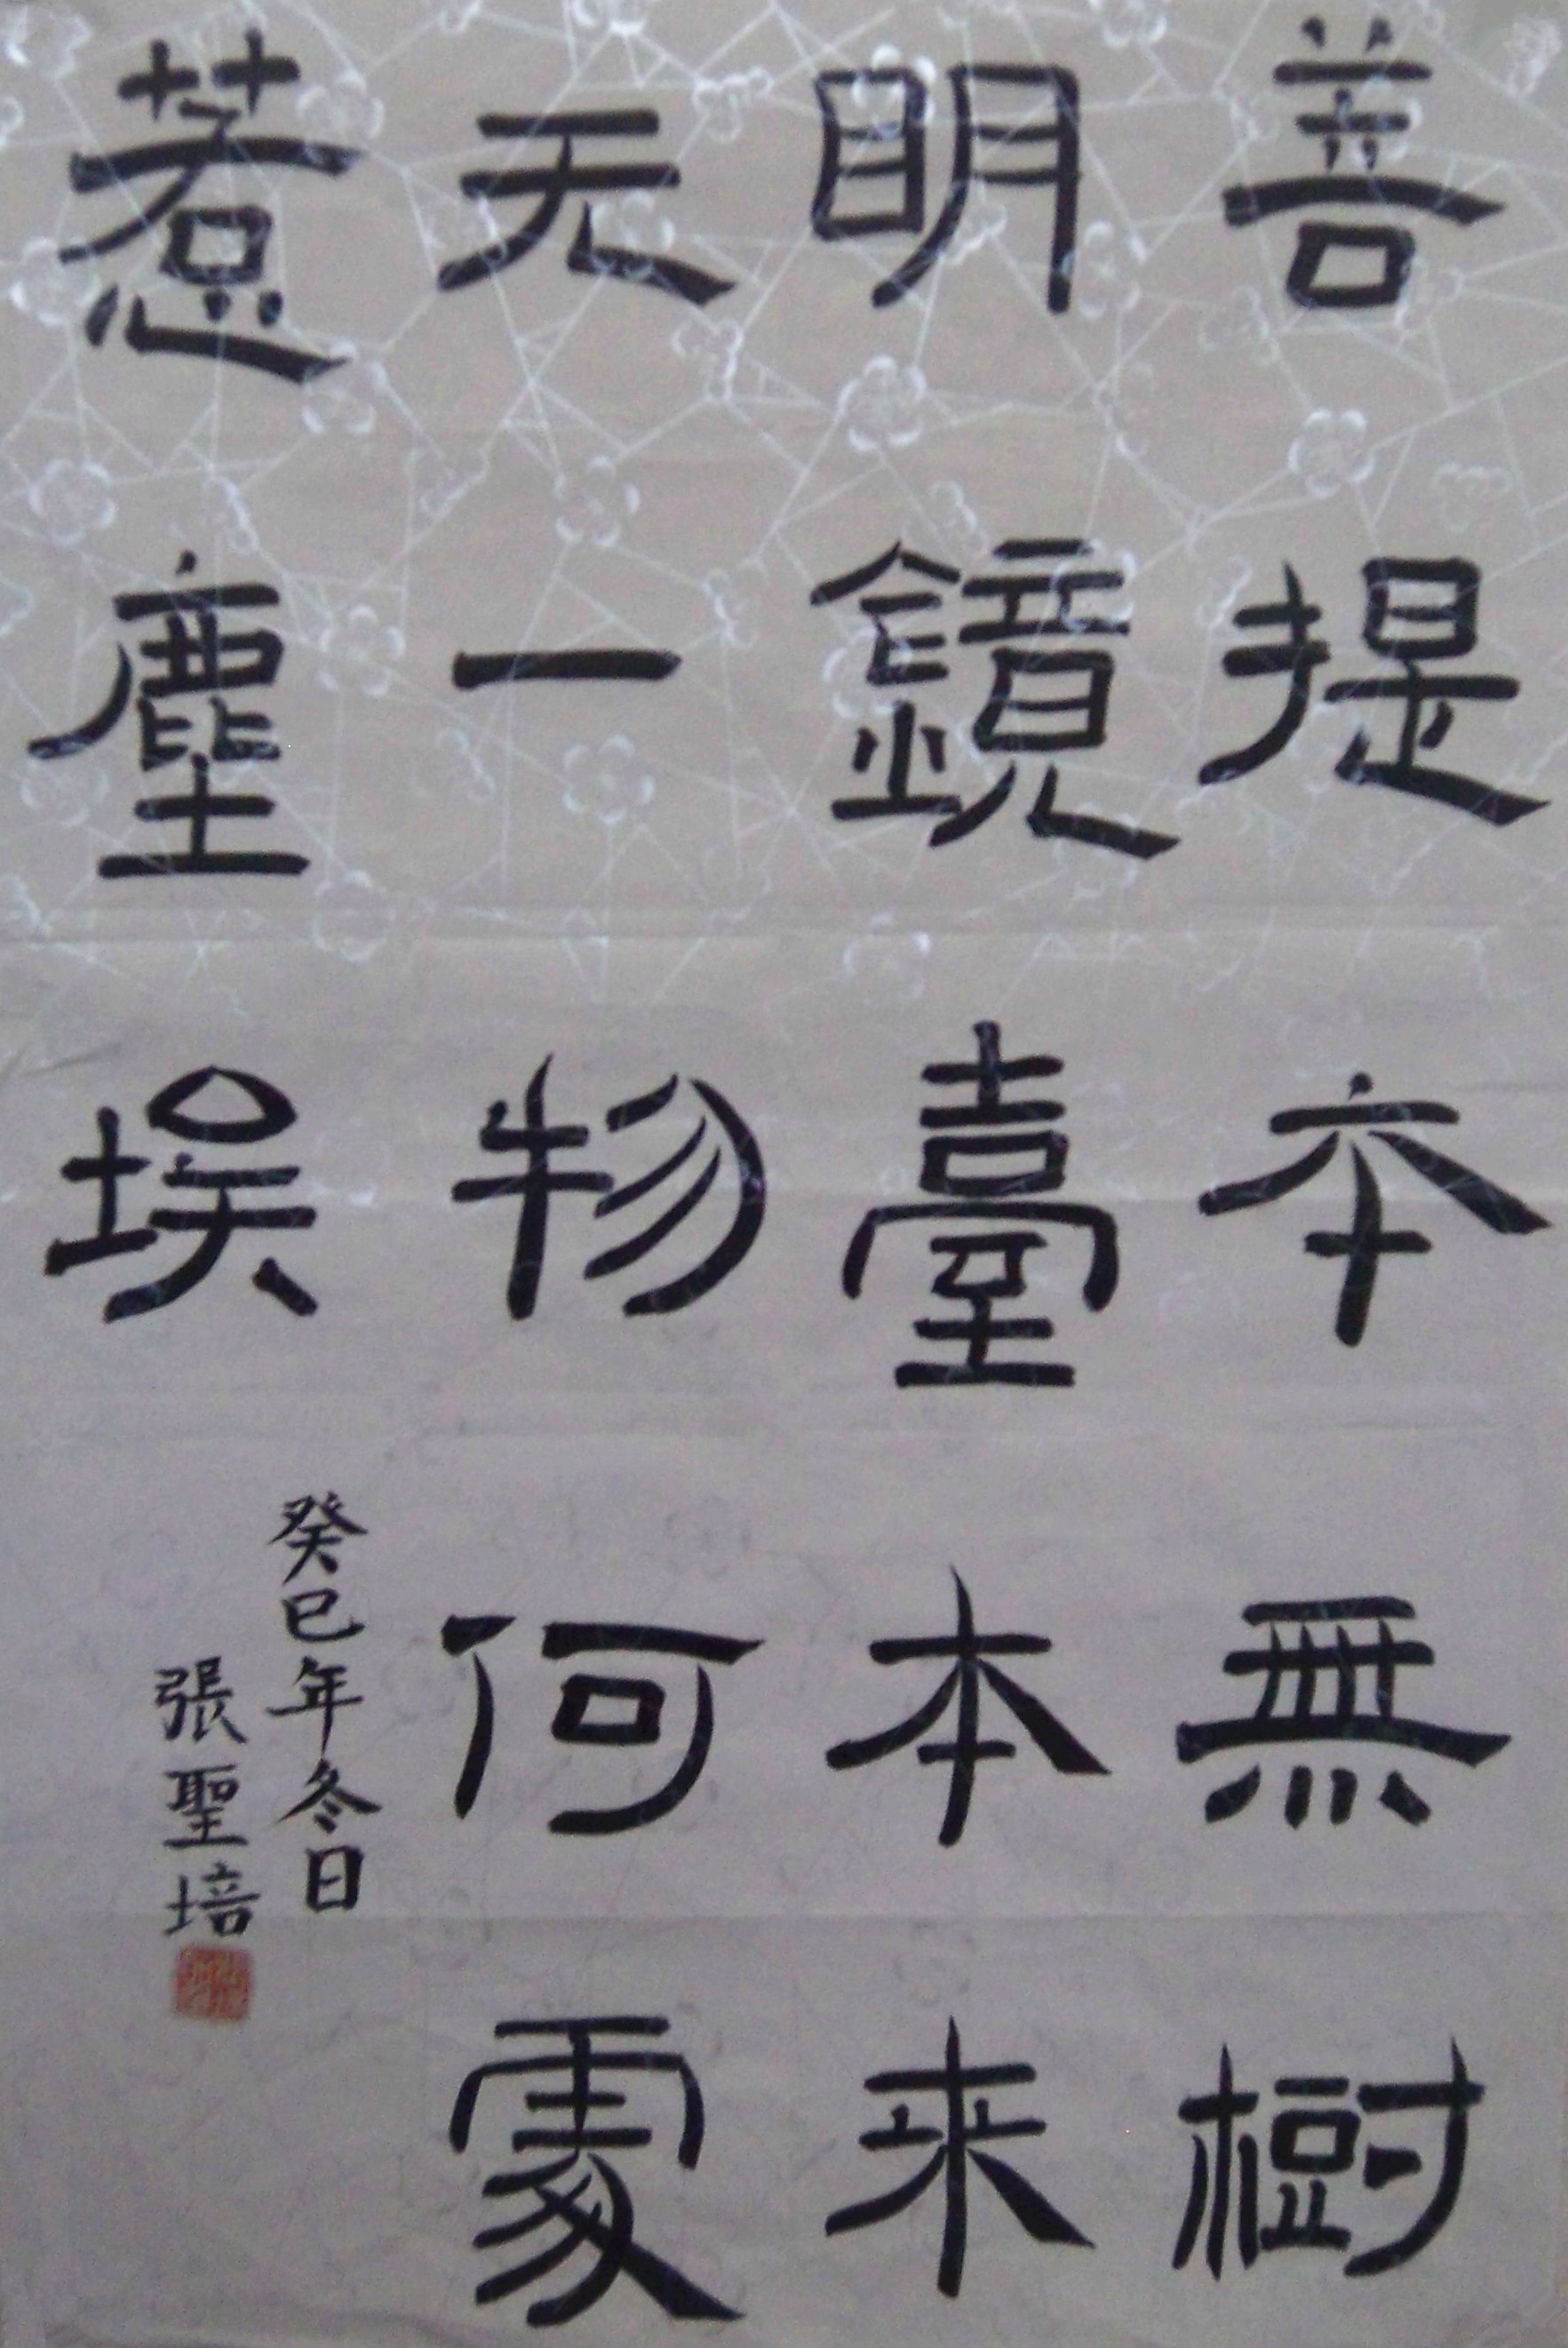 善提本無樹
明鏡臺本来
无一物何處
惹塵埃
癸巳年冬日
張聖培